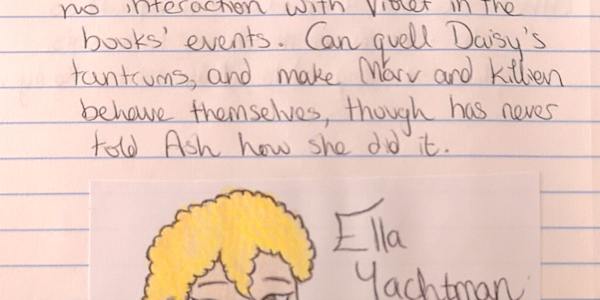 no interaction with Violet in the
books' events. Can quell Daisy's
tantrums, and make Marv and Killien
behave themselves, though has never
told Ash how she did it.
Ella
Yachtman